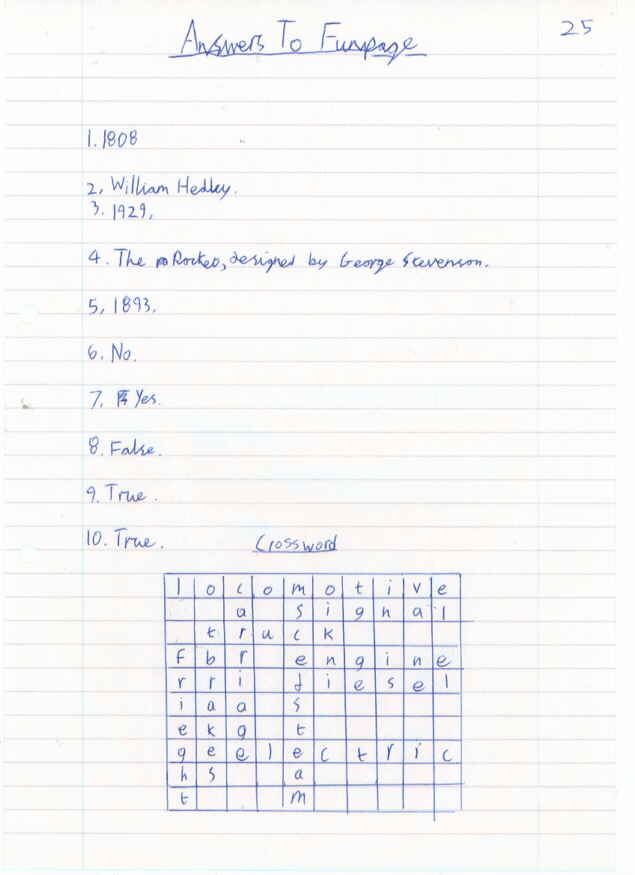 Answers To Funpage
25
1. 1808
2, William Hedley.
3. 1929,
4. The Rocket, designed by George Stevenson.
5, 1893.
6. No.
7. Yes.
8. False.
9. True.
10. True.
Crossword
l o c o m o t i v e
a s i g n a l
t r u c k
f b r e n g i n e
r r i d i e s e l
i a a s
e k g t
g e e l e c t r i c
h s a
t m